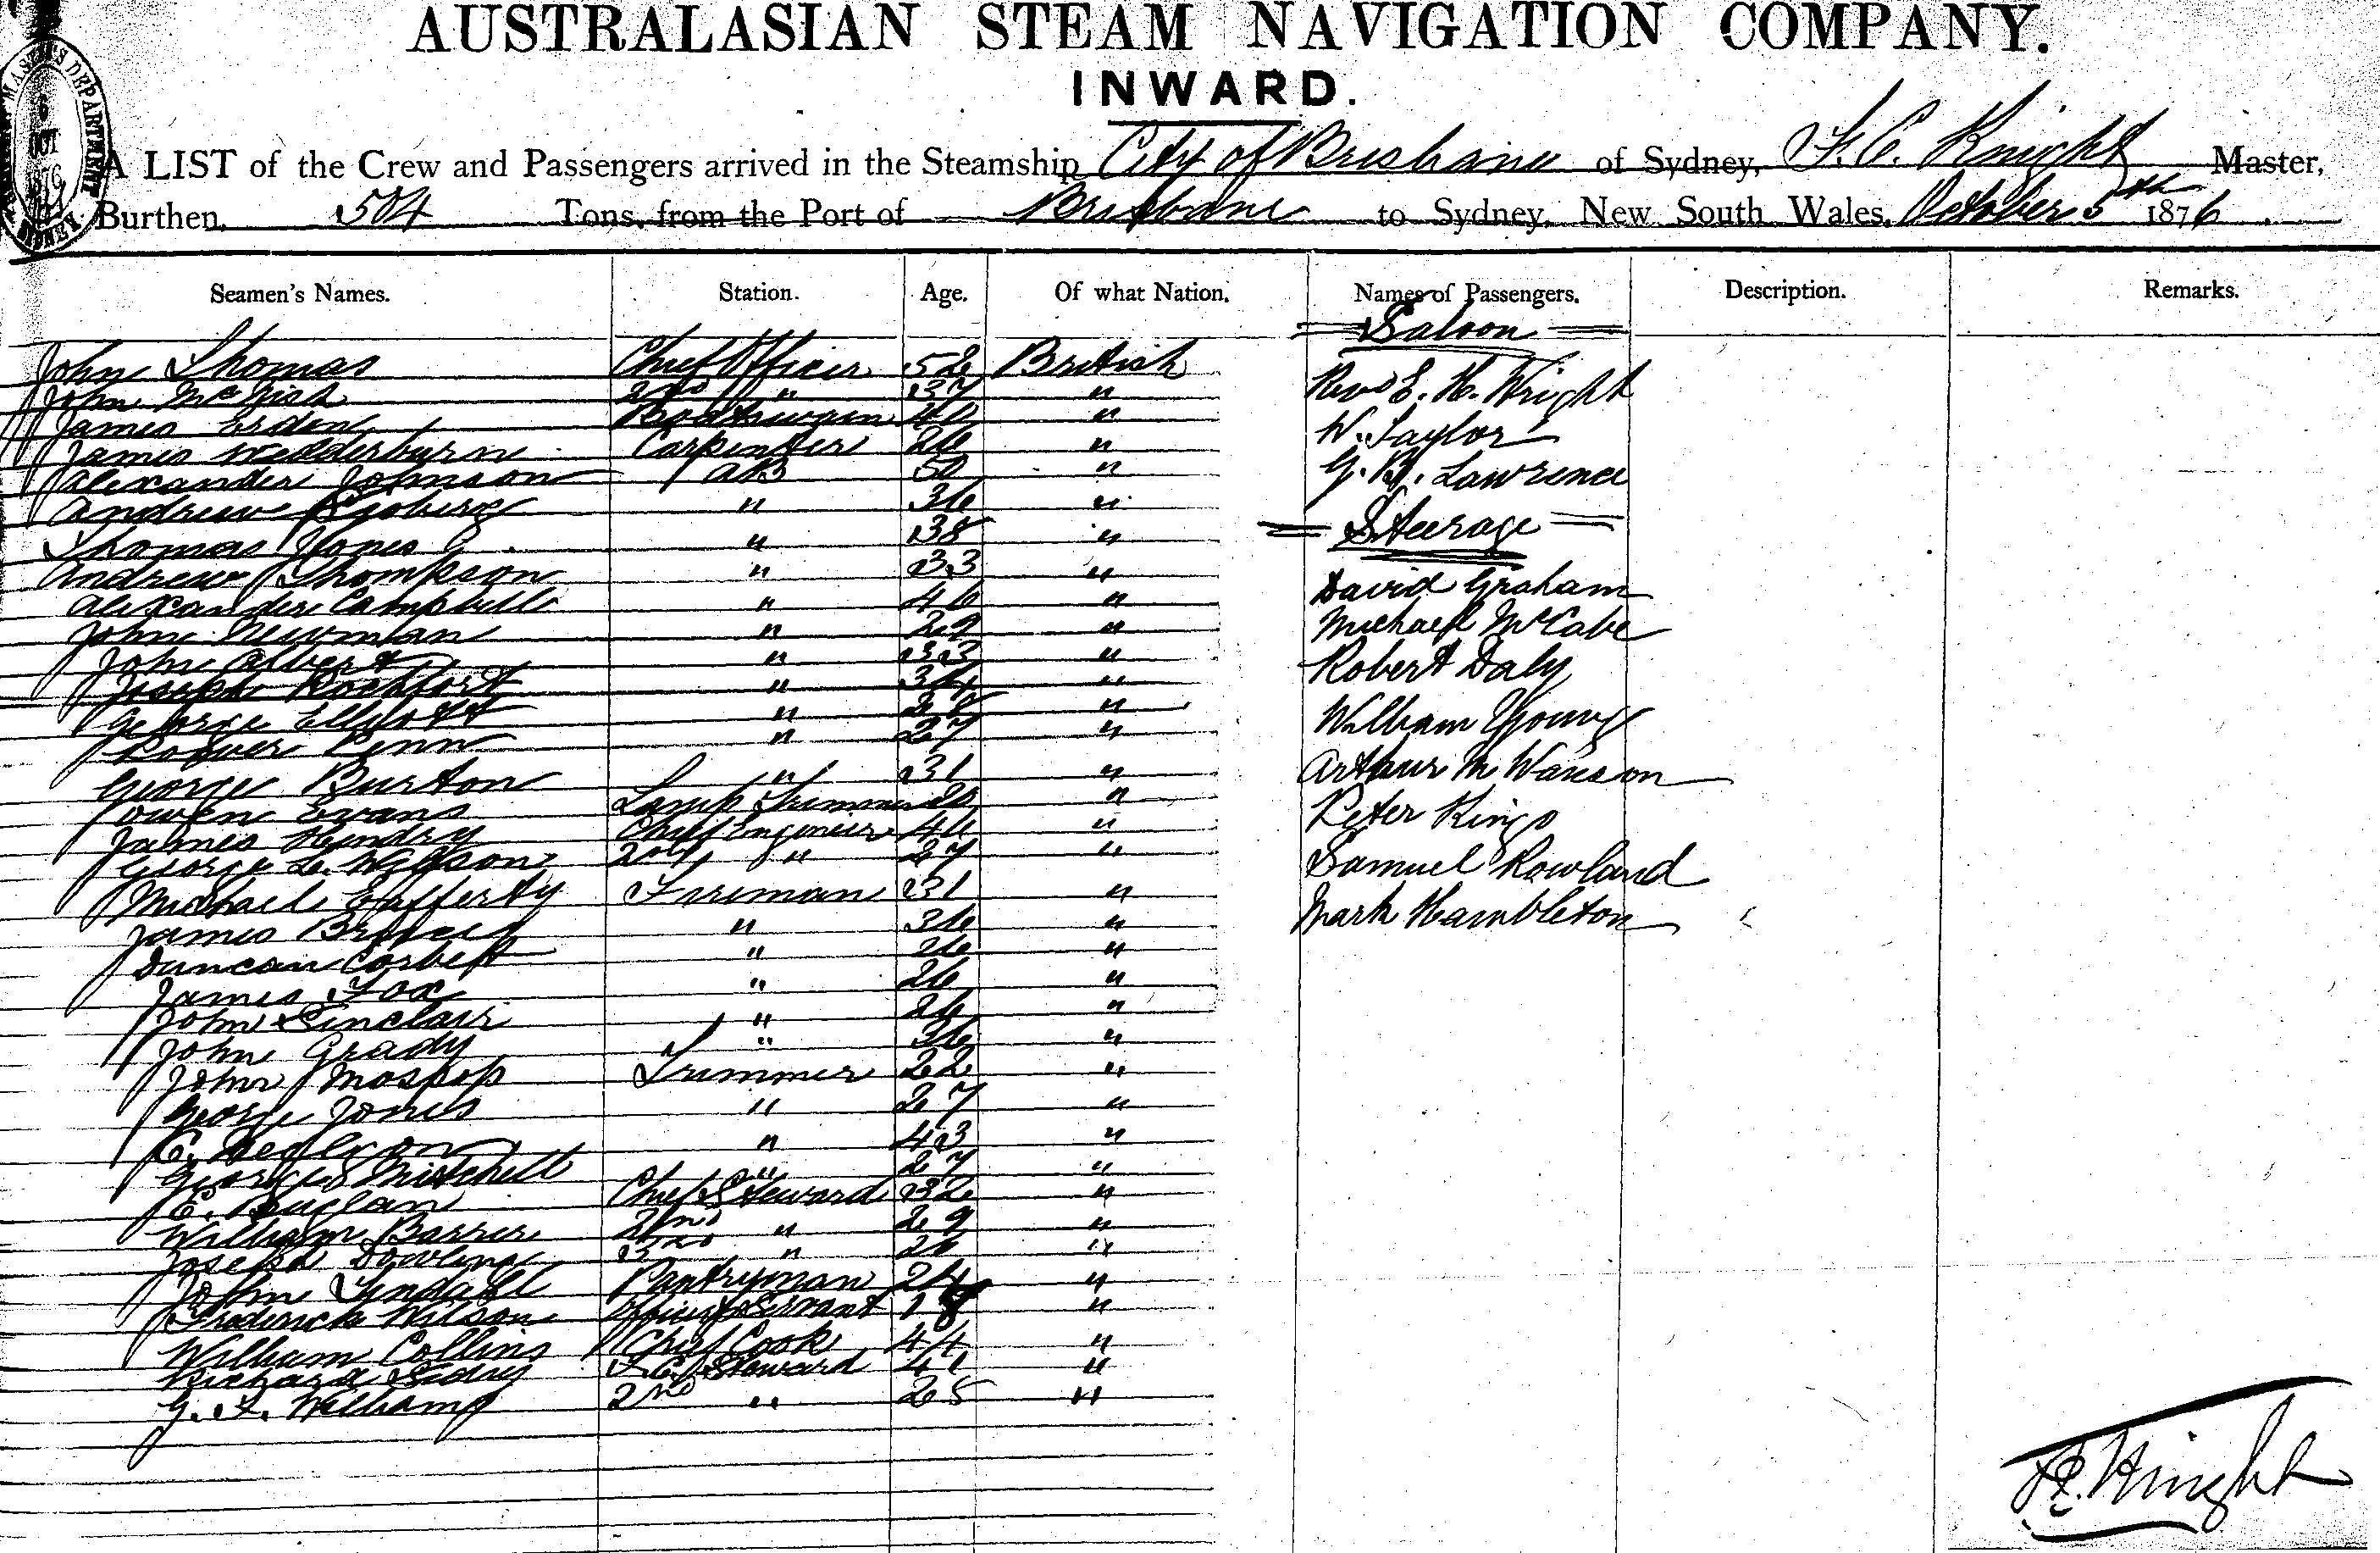 AUSTRALASIAN STEAM NAVIGATION COMPANY.
INWARD.
A LIST of the Crew and Passengers arrived in the Steamship City of Brisbane of Sydney, F. C. Knight Master,
Burthen, 504 Tons, from the Port of Brisbane to Sydney, New South Wales, October 5th 1876
Seamen's Names. Station. Age. Of what Nation. Names of Passengers. Description. Remarks.
Saloon
John Thomas Chief Officer 52 British
Revd E. H. Wright
John 2nd " 37 "
James 40 "
W. Taylor
James Wedderburn Carpenter 26 "
Alexander Johnson AB 50 "
G. Lawrence
Andrew " 36 "
Steerage
Thomas Jones " 38 "
Andrew Thompson " 33 "
David Graham
Alexander Campbell " 46 "
John Newman " 29 "
Michael McCabe
John Albert " 33 "
Robert Daly
Joseph Rochfort " 34 "
George Elliott " 28 "
William Young
Penn " 27 "
George Burton " 31 "
Arthur M
Owen Evans Lamp Trimmer 20 "
Peter King
James Hendry Chief Engineer "
George L. Wilson 2nd " 27 "
Samuel Rowland
Michael Lafferty Fireman 31 "
Mark Hambleton
James " 36 "
Duncan Corbett " 26 "
James Fox " 26 "
John Sinclair " 26 "
John Grady " 36 "
John Mossop Trimmer 22 "
George Jones " 27 "
C. " 43 "
George Mitchell " 27 "
E. Chief Steward 32 "
William Barrer 2nd " 29 "
Joseph Dowling 3rd " 26 "
John Tyndall Pantryman 24 "
Frederick Wilson Officers Servant 18 "
William Collins Chief Cook 44 "
Richard F. C. Steward 41 "
G. F. Williams 2nd " 25 "
F. C. Knight